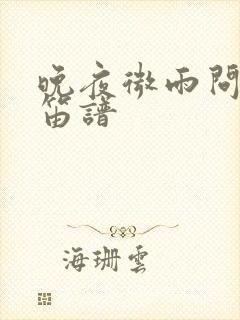 晚夜微雨問
笛譜
海珊雲